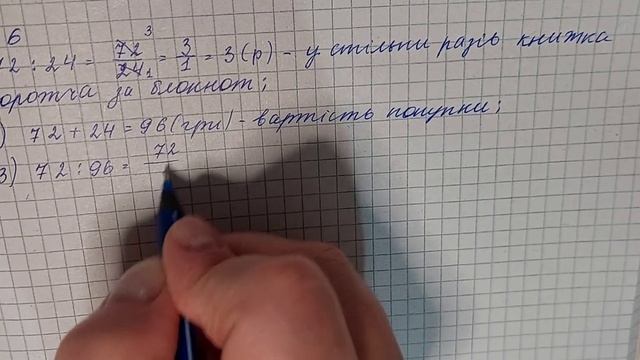 6
72 : 24 = 72 3 / 24 1 = 3/1 = 3 (р) - у стільки разів книжка
дорожча за блокнот;
) 72 + 24 = 96 (грн) - вартість покупки;
3) 72 : 96 = 72